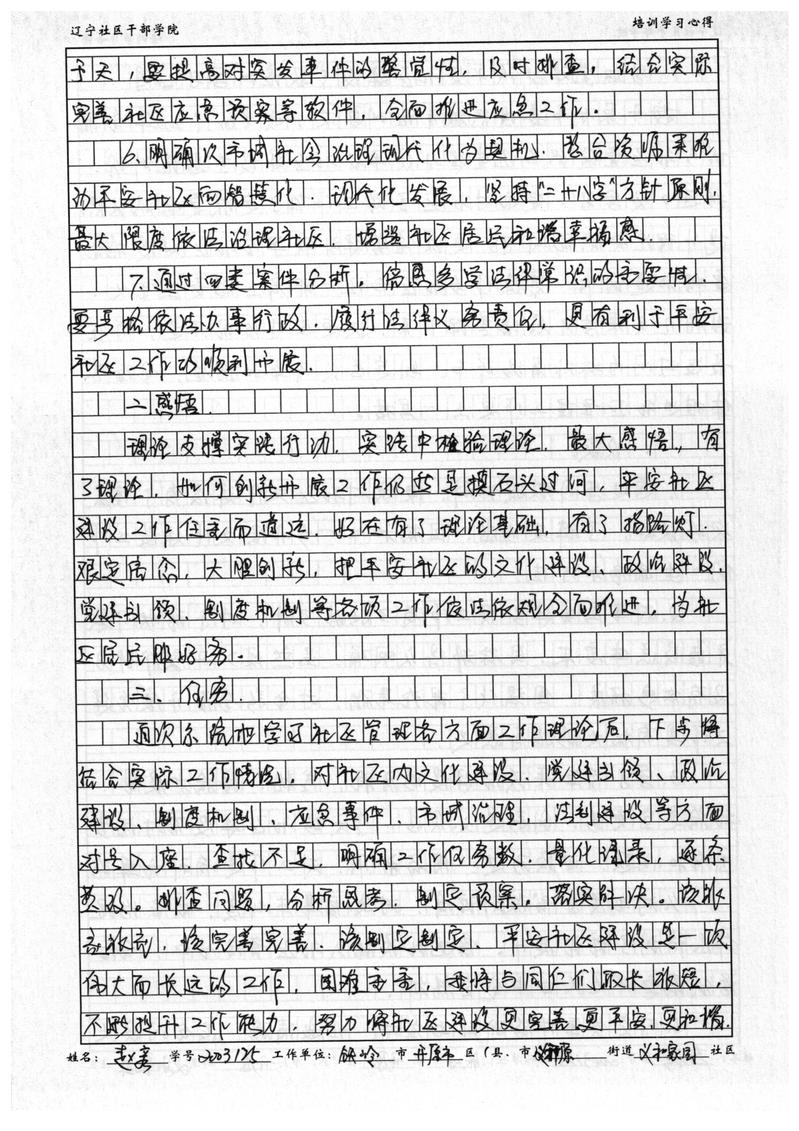 辽宁社区干部学院 培训学习心得
于天,要提高对突发事件的警觉性,及时排查,结合实际
完善社区应急预案等软件,全面推进应急工作.
6.明确次市域社会治理现代化为契机.整合资源来推
动平安社区向智慧化.现代化发展,坚持"二十八字"方针原则,
最大限度依法治理社区,增强社区居民和谐幸福感
7.通过四类案件分析,倍感多学法律常识的重要性.
要严格依法办事行政.履行法律义务责任,更有利于平安
社区工作的顺利开展.
二感悟.
理论支撑实践行动,实践中检验理论,最大感悟,有
了理论,如何创新开展工作仍然是摸石头过河,平安社区
建设工作任重而道远,好在有了理论基础,有了指路灯.
艰定信念,大胆创新,把平安社区的文化建设、政治建设.
党建引领,制度机制等各项工作依法依规全面推进,为社
区居民服好务.
三、任务
这次来院校学习社区管理各方面工作理论后,下步将
结合实际工作情况,对社区内文化建设.党建引领、政治
建设、制度机制、应急事件、市域治理,法制建设等方面
对号入座,查找不足,明确工作任务数.量化课表,逐条
类设。排查问题,分析思考,制定预案。落实解决。该补
充补充,该完善完善.该制定制定.平安社区建设是一项
伟大而长远的工作,困难重重,我将与同仁们取长补短,
不断提升工作能力,努力将社区建设更完善更平安更和谐.
姓名: 学号2203125 工作单位:铁岭 市 开原市 区(县、市) 街道 义和家园 社区